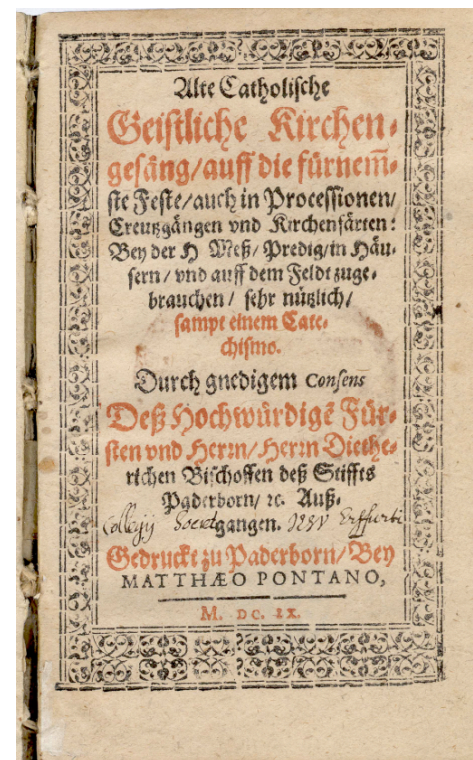 Alte Catholische
Geistliche Kirchen-
gesäng/auff die fürnem̄-
ste Feste/auch in Processionen/
Creutzgängen vnd Kirchenfärten:
Bey der H Meß/Predig/in Häu-
sern/vnd auff dem Feldt zuge-
brauchen/ sehr nützlich/
sampt einem Cate-
chismo.
Durch gnedigem Consens
Deß Hochwürdigẽ Für-
sten vnd Herrn/Herrn Diethe-
richen Bischoffen deß Stiffts
Paderborn/ ꝛc. Auß-
gangen.
Collegij Societ Jesv Erfforti
Gedruckt zu Paderborn/Bey
MATTHÆO PONTANO,
M. DC. IX.